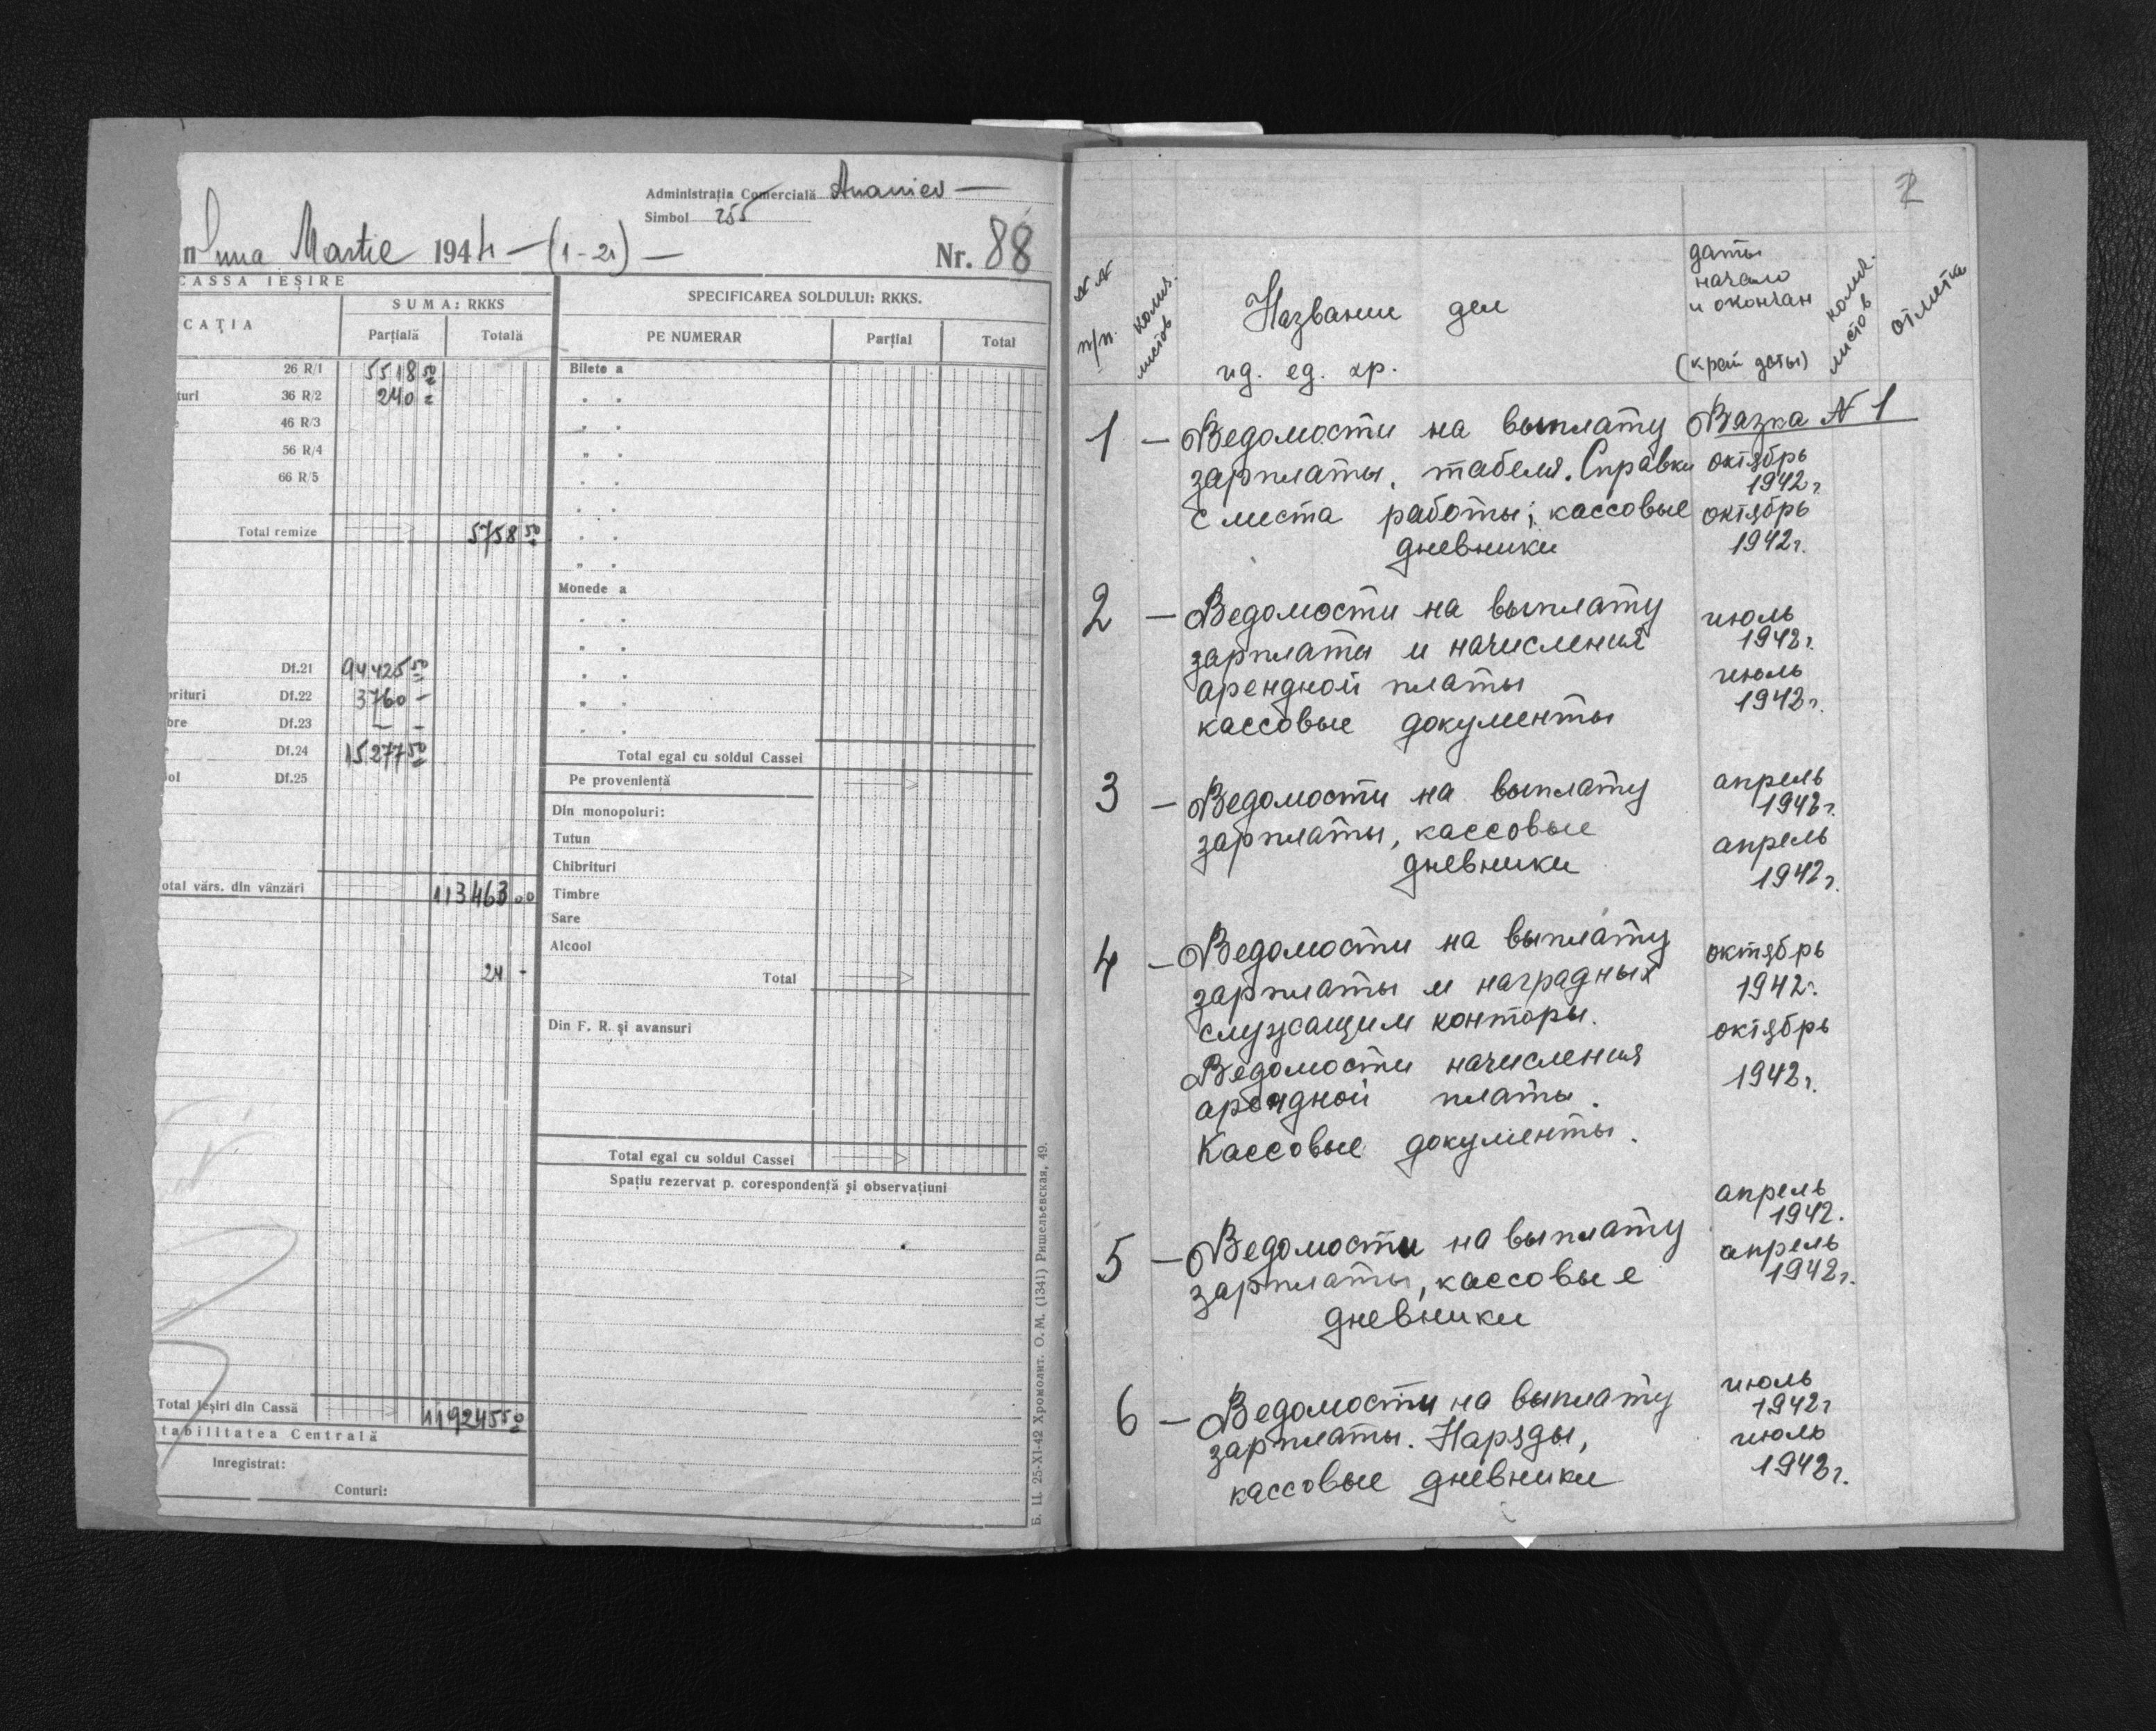 Administrația Comercială Ananiev —
Simbol 255
Luna Martie 1944 — (1-21) —
Nr. 88
CASSA IEȘIRE
SUMA: RKKS
CAȚIA
Parțială Totală
26 R/1 5518 50
turi 36 R/2 240 =
46 R/3
56 R/4
66 R/5
Total remize 5758 50
Df.21 94425 50
brituri Df.22 3760 —
bre Df.23 — —
Df.24 15277 50
ol Df.25
otal vărs. din vânzări 113463 00
24 -
Total Ieșiri din Cassă 119245 50
tabilitatea Centrală
Inregistrat:
Conturi:
SPECIFICAREA SOLDULUI: RKKS.
PE NUMERAR Parțial Total
Bilete a
Monede a
Total egal cu soldul Cassei
Pe proveniență
Din monopoluri:
Tutun
Chibrituri
Timbre
Sare
Alcool
Total
Din F. R. și avansuri
Total egal cu soldul Cassei
Spațiu rezervat p. corespondență și observațiuni
Б. Ц. 25-XI-42 Хромолит. О. М. (1341) Ришельевская, 49.
2
N N
п/п.
колич.
листов
Название дел
ид. ед. хр.
даты
начало
и окончан
(край даты)
колич.
листов
отметка
Вязка N 1
1 — Ведомости на выплату
зарплаты, табеля. Справки
с места работы; кассовые
дневники
октябрь
1942г.
октябрь
1942г.
2 — Ведомости на выплату
зарплаты и начисления
арендной платы
кассовые документы
июль
1942г.
июль
1942г.
3 — Ведомости на выплату
зарплаты, кассовые
дневники
апрель
1942г.
апрель
1942г.
4 — Ведомости на выплату
зарплаты и наградных
служащим конторы.
Ведомости начисления
арендной платы.
Кассовые документы.
октябрь
1942г.
октябрь
1942г.
5 — Ведомости на выплату
зарплаты, кассовые
дневники
апрель
1942.
апрель
1942г.
6 — Ведомости на выплату
зарплаты. Наряды,
кассовые дневники
июль
1942г
июль
1942г.